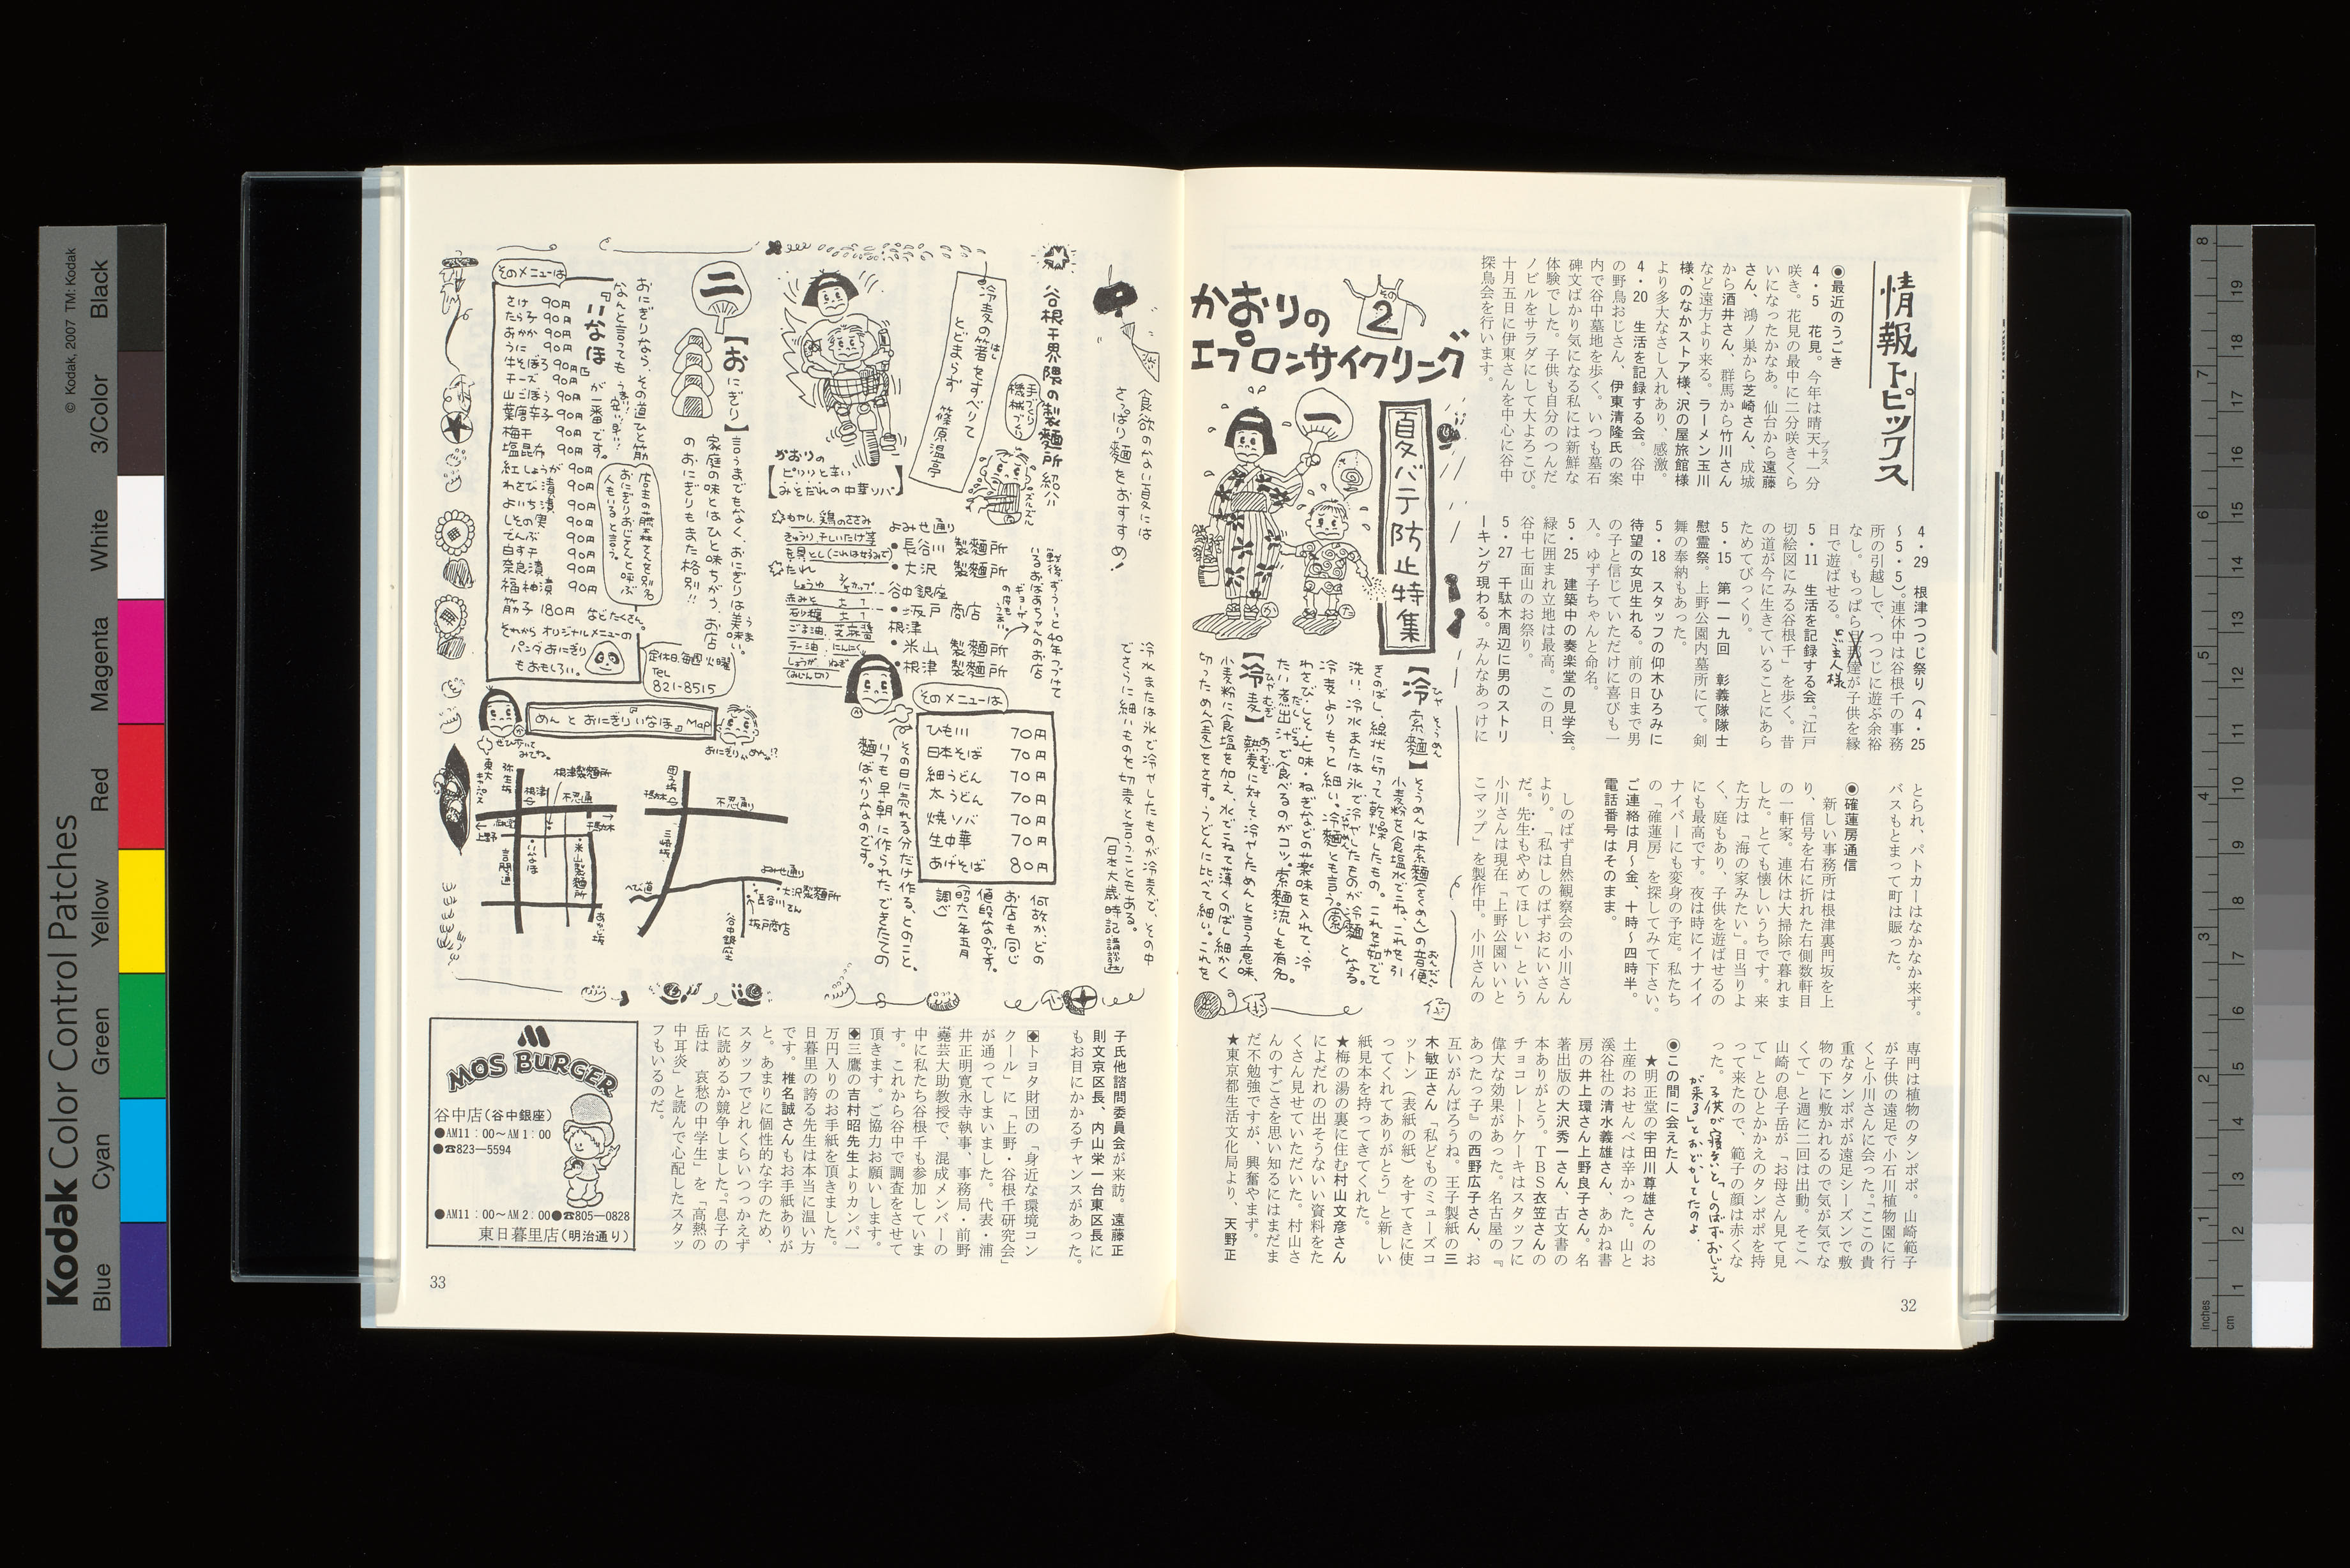 情報トピックス
◉最近のうごき
4・5 花見。今年は晴天十一分
プラス
咲き。花見の最中に二分咲きくら
いになったかなあ。仙台から遠藤
さん、鴻ノ巣から芝崎さん、成城
から酒井さん、群馬から竹川さん
など遠方より来る。ラーメン玉川
様、のなかストア様、沢の屋旅館様
より多大なさし入れあり、感激。
4・20 生活を記録する会。谷中
の野鳥おじさん、伊東清隆氏の案
内で谷中墓地を歩く。いつも墓石
碑文ばかり気になる私には新鮮な
体験でした。子供も自分のつんだ
ノビルをサラダにして大よろこび。
十月五日に伊東さんを中心に谷中
探鳥会を行います。
4・29 根津つつじ祭り(4・25
～5・5)。連休中は谷根千の事務
所の引越しで、つつじに遊ぶ余裕
なし。もっぱら旦那達が子供を縁
ご主人様
日で遊ばせる。
5・11 生活を記録する会。「江戸
切絵図にみる谷根千」を歩く。昔
の道が今に生きていることにあら
ためてびっくり。
5・15 第一一九回 彰義隊隊士
慰霊祭。上野公園内墓所にて。剣
舞の奉納もあった。
5・18 スタッフの仰木ひろみに
待望の女児生れる。前の日まで男
の子と信じていただけに喜びも一
入。ゆず子ちゃんと命名。
5・25 建築中の奏楽堂の見学会。
緑に囲まれ立地は最高。この日、
谷中七面山のお祭り。
5・27 千駄木周辺に男のストリ
ーキング現わる。みんなあっけに
とられ、パトカーはなかなか来ず。
バスもとまって町は賑った。
◉確蓮房通信
新しい事務所は根津裏門坂を上
り、信号を右に折れた右側数軒目
の一軒家。連休は大掃除で暮れま
した。とても懐しいうちです。来
た方は「海の家みたい」。日当りよ
く、庭もあり、子供を遊ばせるの
にも最高です。夜は時にイナイイ
ナイバーにも変身の予定。私たち
の「確蓮房」を探してみて下さい。
ご連絡は月～金、十時～四時半。
電話番号はそのまま。
しのばず自然観察会の小川さん
より。「私はしのばずおにいさん
だ。先生もやめてほしい」という
小川さんは現在「上野公園いいと
こマップ」を製作中。小川さんの
専門は植物のタンポポ。山崎範子
が子供の遠足で小石川植物園に行
くと小川さんに会った。「ここの貴
重なタンポポが遠足シーズンで敷
物の下に敷かれるので気が気でな
くて」と週に二回は出動。そこへ
山崎の息子岳が「お母さん見て見
て」とひとかかえのタンポポを持
って来たので、範子の顔は赤くな
った。
子供が寝ないと「しのばずおじさん
が来る」とおどかしてたのよ。
◉この間に会えた人
★明正堂の宇田川尊雄さんのお
土産のおせんべは辛かった。山と
溪谷社の清水義雄さん、あかね書
房の井上環さん上野良子さん。名
著出版の大沢秀一さん、古文書の
本ありがとう。TBS衣笠さんの
チョコレートケーキはスタッフに
偉大な効果があった。名古屋の『
あつたっ子』の西野広子さん、お
互いがんばろうね。王子製紙の三
木敏正さん「私どものミューズコ
ットン(表紙の紙)をすてきに使
ってくれてありがとう」と新しい
紙見本を持ってきてくれた。
★梅の湯の裏に住む村山文彦さん
によだれの出そうないい資料をた
くさん見せていただいた。村山さ
んのすごさを思い知るにはまだま
だ不勉強ですが、興奮やまず。
★東京都生活文化局より、天野正
かおりの
2
エプロンサイクリング
一
夏バテ防止特集
【冷索麺】
ひやそうめん
そうめんは索麺(さくめん)の音便。
小麦粉を食塩水でこね、これを引
きのばし、線状に切って乾燥したもの。これを茹でて
洗い、冷水または氷で冷やしたものが冷麺となる。
冷麦よりもっと細い。冷麺とも言う。
わさび・しそ・七味・ねぎなどの薬味を入れて、冷
たい煮出汁で食べるのがコツ。索麺流しも有名。
【冷麦】
ひやむぎ
熱麦に対して冷やしためんと言う意味、
小麦粉に食塩を加え、水でこねて薄くのばし細かく
切っためん(麦)をさす。うどんに比べて細い。これを
冷水または氷で冷やしたものが冷麦で、その中
でさらに細いものを切麦と言うこともある。
〔日本大歳時記 講談社〕
食欲のない夏には
さっぱり麺をおすすめ!
谷根千界隈の製麺所紹介
手づくり
機械づくり
冷麦の箸をすべりて
とどまらず 篠原温亭
かおりの
【ピリリと辛い
みそだれの中華ソバ】
☆もやし、鶏のささみ
きゅうり、干しいたけ等
を具とし(これは好みで)
☆たれ
しょうゆ
赤みそ
砂糖
ごま油、芝麻醤
ラー油、にんにく
しょうが ねぎ
(みじん切)
よみせ通り
・長谷川 製麺所
・大沢 製麺所
谷中銀座
・坂戸 商店
根津
・米山 製麺所
・根津 製麺所
戦後ずうーっと40年つづけて
いるおばあちゃんのお店
ギョーザ
の皮も
うまい。
そのメニューは
ひも川 70円
日本そば 70円
細うどん 70円
太うどん 70円
焼ソバ 70円
生中華 70円
あげそば 80円
何故か、どの
お店も同じ
値段なのです。
(昭六一年五月
調べ)
その日に売れる分だけ作る、とのこと、
いつも早朝に作られたできたての
麺ばかりなのです。
二
【おにぎり】
言うまでもなく、おにぎりは美味い。
うま
家庭の味とはひと味ちがう、お店
のおにぎりもまた格別!!
おにぎりなら、その道ひと筋
なんと言っても うまい!! 安い 早い!!
『いなほ』が一番です。
店主の藤森さんを別名
おにぎりおじさんと呼ぶ
人もいると言う。
そのメニューは
さけ 90円
たら子 90円
おかか 90円
うに 90円
牛そぼろ 90円
チーズ 90円
山ごぼう 90円
葉唐辛子 90円
梅干 90円
塩昆布 90円
紅しょうが 90円
わさび漬 90円
よいち漬 90円
しその実 90円
でんぶ 90円
白す干 90円
奈良漬 90円
福神漬 90円
筋子 180円 などたくさん。
それから オリジナルメニューの
パンダおにぎり
もおもしろい。
定休日 毎週 火曜
TEL
821-8515
めんとおにぎり『いなほ』Map
ぜひ歩いて
みてね。
おにぎり?めん?!?
東大
弥生坂
根津製麺所
根津
不忍通
千駄木
上野
言問通
・いなほ
・米山製麺所
あかぢ坂
団子坂
千駄木
不忍通り
三崎坂
へび道
よみせ通り
・大沢製麺所
・長谷川さん
坂戸商店
谷中銀座
子氏他諮問委員会が来訪。遠藤正
則文京区長、内山栄一台東区長に
もお目にかかるチャンスがあった。
◆トヨタ財団の「身近な環境コン
クール」に「上野・谷根千研究会」
が通ってしまいました。代表・浦
井正明寛永寺執事、事務局・前野
嶤芸大助教授で、混成メンバーの
中に私たち谷根千も参加していま
す。これから谷中で調査をさせて
頂きます。ご協力お願いします。
◆三鷹の吉村昭先生よりカンパ一
万円入りのお手紙を頂きました。
日暮里の誇る先生は本当に温い方
です。椎名誠さんもお手紙ありが
と。あまりに個性的な字のため、
スタッフでどれくらいつっかえず
に読めるか競争しました。「息子の
岳は 哀愁の中学生」を「高熱の
中耳炎」と読んで心配したスタッ
フもいるのだ。
MOS BURGER
谷中店(谷中銀座)
●AM11:00～AM1:00
●☎823—5594
●AM11:00～AM2:00●☎805—0828
東日暮里店(明治通り)
33
32
Kodak Color Control Patches
© Kodak, 2007 TM: Kodak
Blue Cyan Green Yellow Red Magenta White 3/Color Black
inches
cm
1 2 3 4 5 6 7 8
1 2 3 4 5 6 7 8 9 10 11 12 13 14 15 16 17 18 19